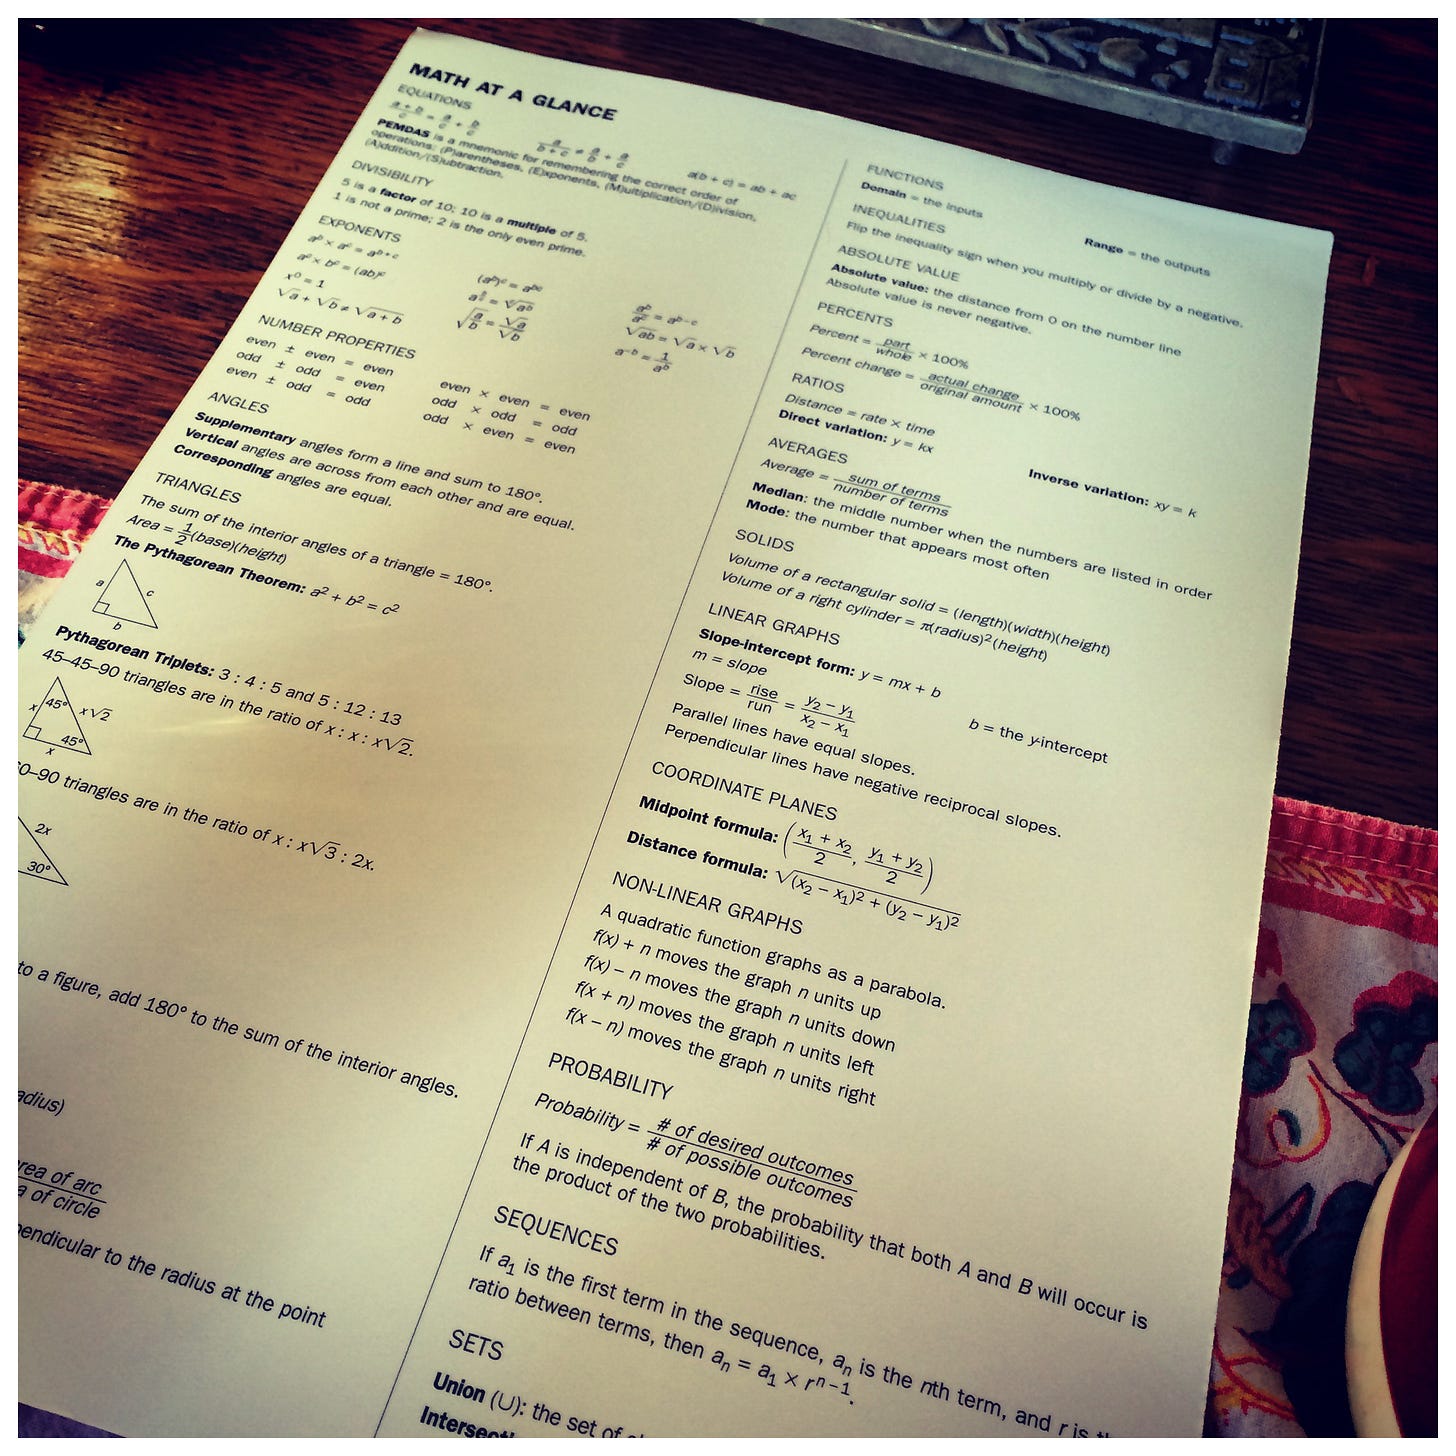 MATH AT A GLANCE
EQUATIONS
(a + b)/c = a/c + b/c
a/(b + c) ≠ a/b + a/c
a(b + c) = ab + ac
PEMDAS is a mnemonic for remembering the correct order of
operations: (P)arentheses, (E)xponents, (M)ultiplication/(D)ivision,
(A)ddition/(S)ubtraction.
DIVISIBILITY
5 is a factor of 10; 10 is a multiple of 5.
1 is not a prime; 2 is the only even prime.
EXPONENTS
aᵇ × aᶜ = aᵇ⁺ᶜ
(aᵇ)ᶜ = aᵇᶜ
aᵇ/aᶜ = aᵇ⁻ᶜ
aᶜ × bᶜ = (ab)ᶜ
√ab = √a × √b
x⁰ = 1
√(a/b) = √a/√b
a⁻ᵇ = 1/aᵇ
√a + √b ≠ √(a + b)
NUMBER PROPERTIES
even ± even = even
even × even = even
odd ± odd = even
odd × odd = odd
even ± odd = odd
odd × even = even
ANGLES
Supplementary angles form a line and sum to 180°.
Vertical angles are across from each other and are equal.
Corresponding angles are equal.
TRIANGLES
The sum of the interior angles of a triangle = 180°.
Area = 1/2(base)(height)
The Pythagorean Theorem: a² + b² = c²
a
c
b
Pythagorean Triplets: 3 : 4 : 5 and 5 : 12 : 13
45–45–90 triangles are in the ratio of x : x : x√2.
45°
x
x√2
45°
x
0–90 triangles are in the ratio of x : x√3 : 2x.
2x
30°
to a figure, add 180° to the sum of the interior angles.
adius)
rea of arc
a of circle
endicular to the radius at the point
FUNCTIONS
Domain = the inputs
Range = the outputs
INEQUALITIES
Flip the inequality sign when you multiply or divide by a negative.
ABSOLUTE VALUE
Absolute value: the distance from 0 on the number line
Absolute value is never negative.
PERCENTS
Percent = part/whole × 100%
Percent change = actual change/original amount × 100%
RATIOS
Distance = rate × time
Direct variation: y = kx
Inverse variation: xy = k
AVERAGES
Average = sum of terms/number of terms
Median: the middle number when the numbers are listed in order
Mode: the number that appears most often
SOLIDS
Volume of a rectangular solid = (length)(width)(height)
Volume of a right cylinder = π(radius)²(height)
LINEAR GRAPHS
Slope-intercept form: y = mx + b
m = slope
b = the y-intercept
Slope = rise/run = (y₂ – y₁)/(x₂ – x₁)
Parallel lines have equal slopes.
Perpendicular lines have negative reciprocal slopes.
COORDINATE PLANES
Midpoint formula: ((x₁ + x₂)/2, (y₁ + y₂)/2)
Distance formula: √((x₂ – x₁)² + (y₂ – y₁)²)
NON-LINEAR GRAPHS
A quadratic function graphs as a parabola.
f(x) + n moves the graph n units up
f(x) – n moves the graph n units down
f(x + n) moves the graph n units left
f(x – n) moves the graph n units right
PROBABILITY
Probability = # of desired outcomes/# of possible outcomes
If A is independent of B, the probability that both A and B will occur is
the product of the two probabilities.
SEQUENCES
If a₁ is the first term in the sequence, aₙ is the nth term, and r is
ratio between terms, then aₙ = a₁ × rⁿ⁻¹.
SETS
Union (∪): the set of